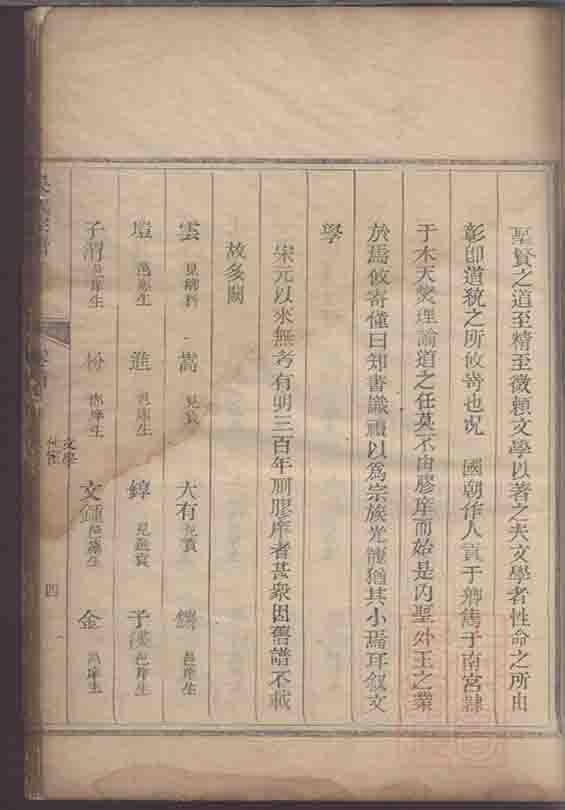 聖賢之道至精至微賴文學以著之夫文學者性命之所由
彰卽道統之所攸寄也况　國朝作人貢于鄉雋于南宮隸
于木天爕理論道之任莫不由膠庠而始是內聖外王之業
於焉攸寄僅曰知書識禮以爲宗族光寵猶其小焉耳叙文
學
宋元以來無考有明三百年列膠庠者甚衆因舊譜不載
故多闕
雲 見 科　嵩 見貢　大有 見貢　邑庠生
塏 邑庠生　進 邑庠生　錞 見進貢　子漢 邑庠生
子渭 邑庠生　份 庠生　文鍾 邑庠生　金 邑庠生
文學
四